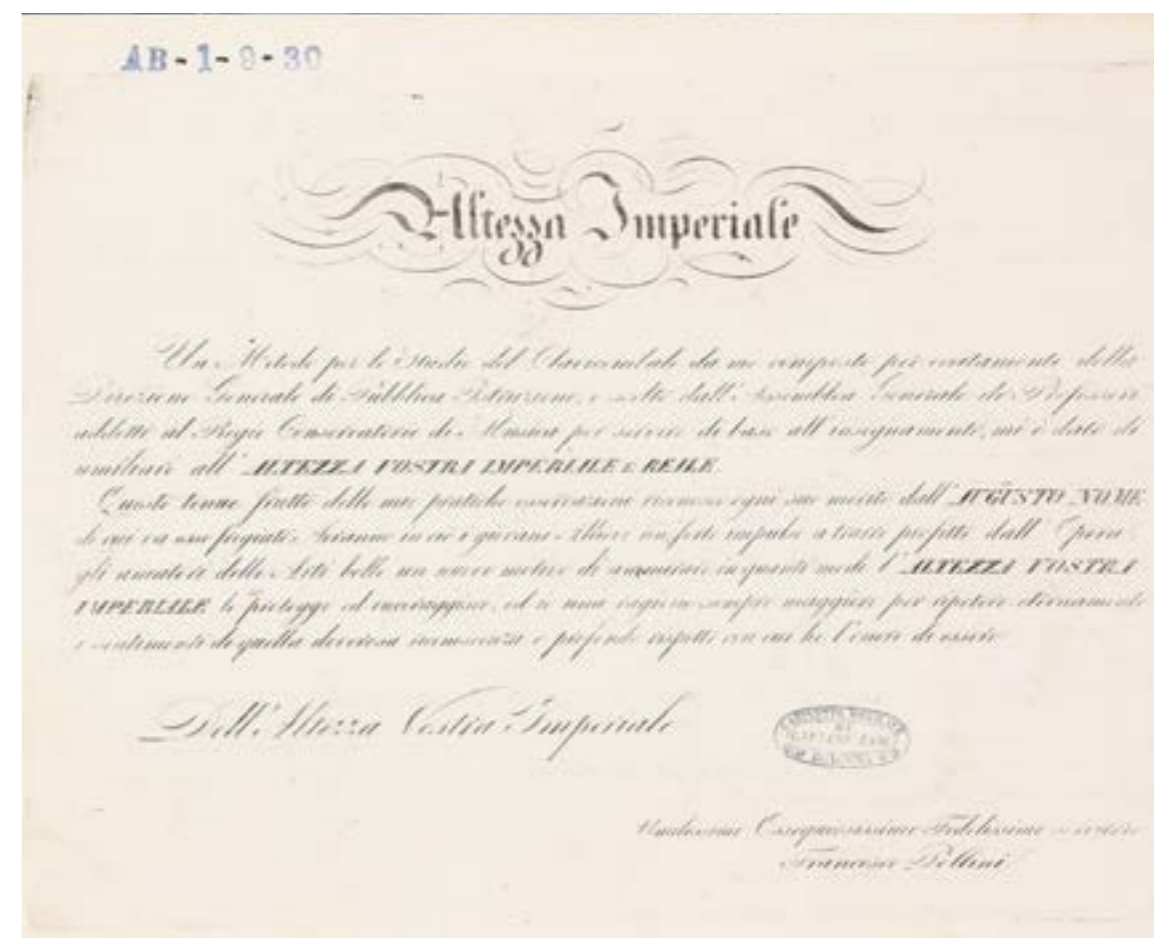 AB-1-9-30
Altezza Imperiale
Un Metodo per lo Studio del Clavicembalo da me composto per eccitamento della
Direzione Generale di Pubblica Istruzione, e scelto dall'Assemblea Generale de Professori
addetti al Regio Conservatorio di Musica per servire di base all'insegnamento, mi è dato di
umiliare all'ALTEZZA VOSTRA IMPERIALE e REALE.
Questo tenue frutto delle mie pratiche osservazioni riconosce ogni suo merito dall'AUGUSTO NOME
di cui va esso fregiato. Avranno in ciò i giovani Allievi un forte impulso a trarre profitto dall'Opera
gli amatori delle Arti belle un nuovo motivo di ammirare in quanti modi l'ALTEZZA VOSTRA
IMPERIALE le protegge ed incoraggisce, ed io una ragione sempre maggiore per ripetere eternamente
i sentimenti di quella doverosa riconoscenza e profondo rispetto con cui ho l'onore di essere
Dell'Altezza Vostra Imperiale
Umilissimo Ossequiosissimo Fedelissimo servitore
Francesco Pollini